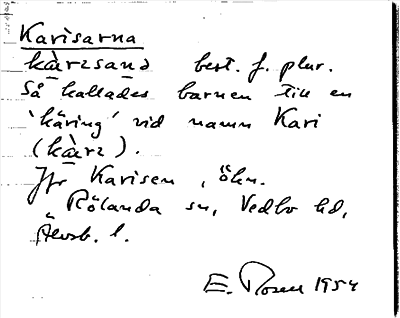 Karisarna
kàrɩsanɔ best. f. plur.
Så kallades barnen till en
'käring' vid namn Kari
(kàrɩ).
Jfr Karisen, ökn.
Rölanda sn, Vedbo hd,
Älvsb. l.
E. Rosen 1954